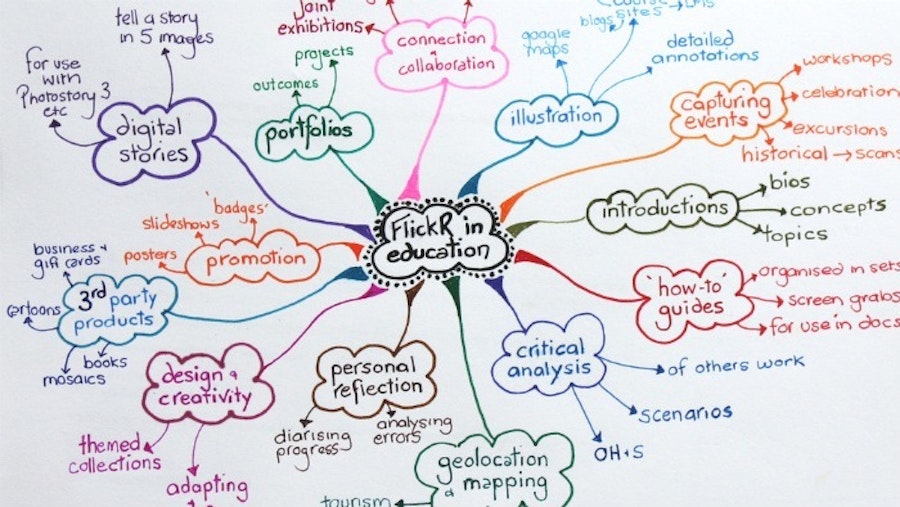 tell a story
in 5 images
for use
with
Photostory 3
etc
digital
stories
projects
outcomes
portfolios
joint
exhibitions
connection
&
collaboration
google
maps
blogs
sites → LMS
detailed
annotations
illustration
capturing
events
workshops
celebration
excursions
historical → scans
introductions
bios
concepts
topics
FlickR in
education
'badges'
slideshows
posters
promotion
business +
gift cards
cartoons
mosaics
books
3rd party
products
'how-to'
guides
organised in sets
screen grabs
for use in docs
critical
analysis
of others work
scenarios
OH+S
design &
creativity
themed
collections
adapting
personal
reflection
diarising
progress
analysing
errors
geolocation
& mapping
tourism